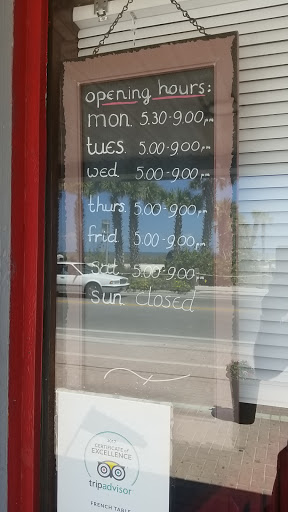 opening hours:
mon. 5.30-9.00pm
tues 5.00-9.00pm
wed 5.00-9.00pm
thurs. 5.00-9.00pm
frid 5.00-9.00pm
sat 5.00-9.00pm
sun. closed
2017
CERTIFICATE of
EXCELLENCE
tripadvisor
FRENCH TABLE